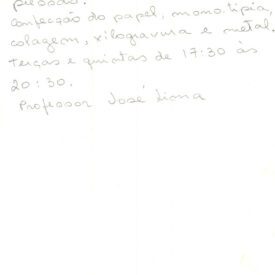 pressão.
Confecção do papel, monotipia,
colagem, xilogravura e metal.
Terças e quintas de 17:30 às
20:30.
Professor José Lima